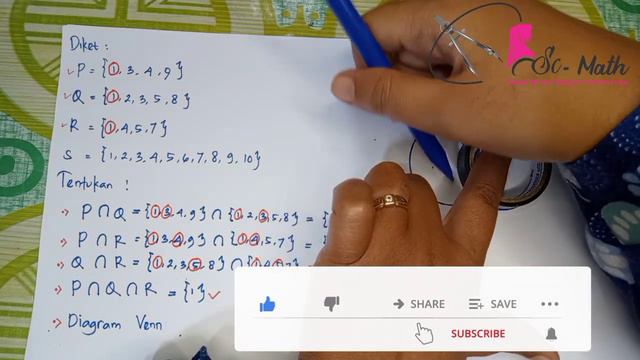 Diket :
P = {1, 3, 4, 9}
Q = {1, 2, 3, 5, 8}
R = {1, 4, 5, 7}
S = {1, 2, 3, 4, 5, 6, 7, 8, 9, 10}
Tentukan !
P ∩ Q = {1, 3, 4, 9} ∩ {1, 2, 3, 5, 8} = {
P ∩ R = {1, 3, 4, 9} ∩ {1, 4, 5, 7} = {
Q ∩ R = {1, 2, 3, 5, 8} ∩ {1, 4, 5, 7}
P ∩ Q ∩ R = {1}
Diagram Venn
Sc-Math
SHARE SAVE
SUBSCRIBE